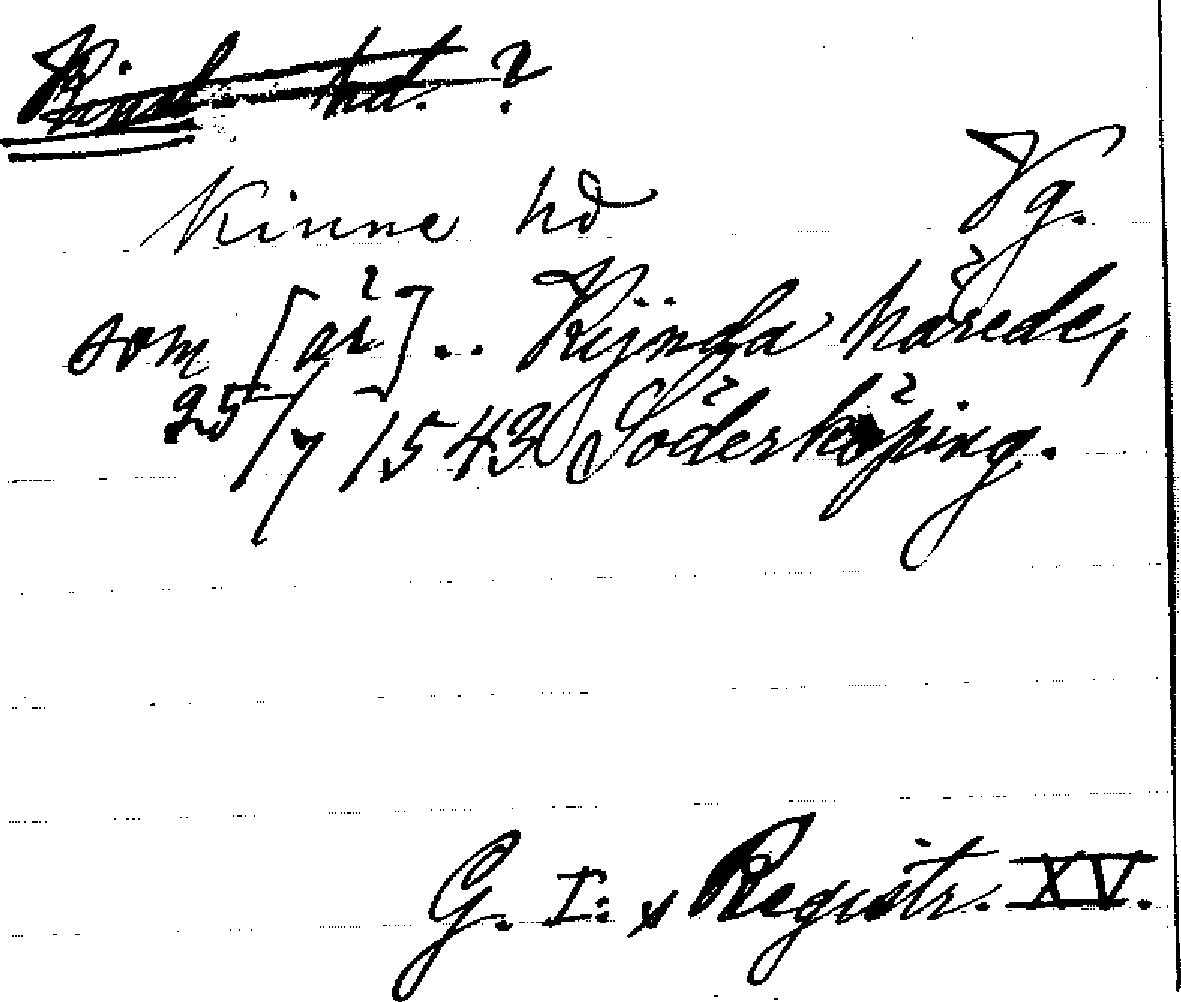 hd. ?
Kinne hd Vg.
som [är].. Kijnda härede,
25/7 1543 Söderköping.
G. I:s Registr. XV.